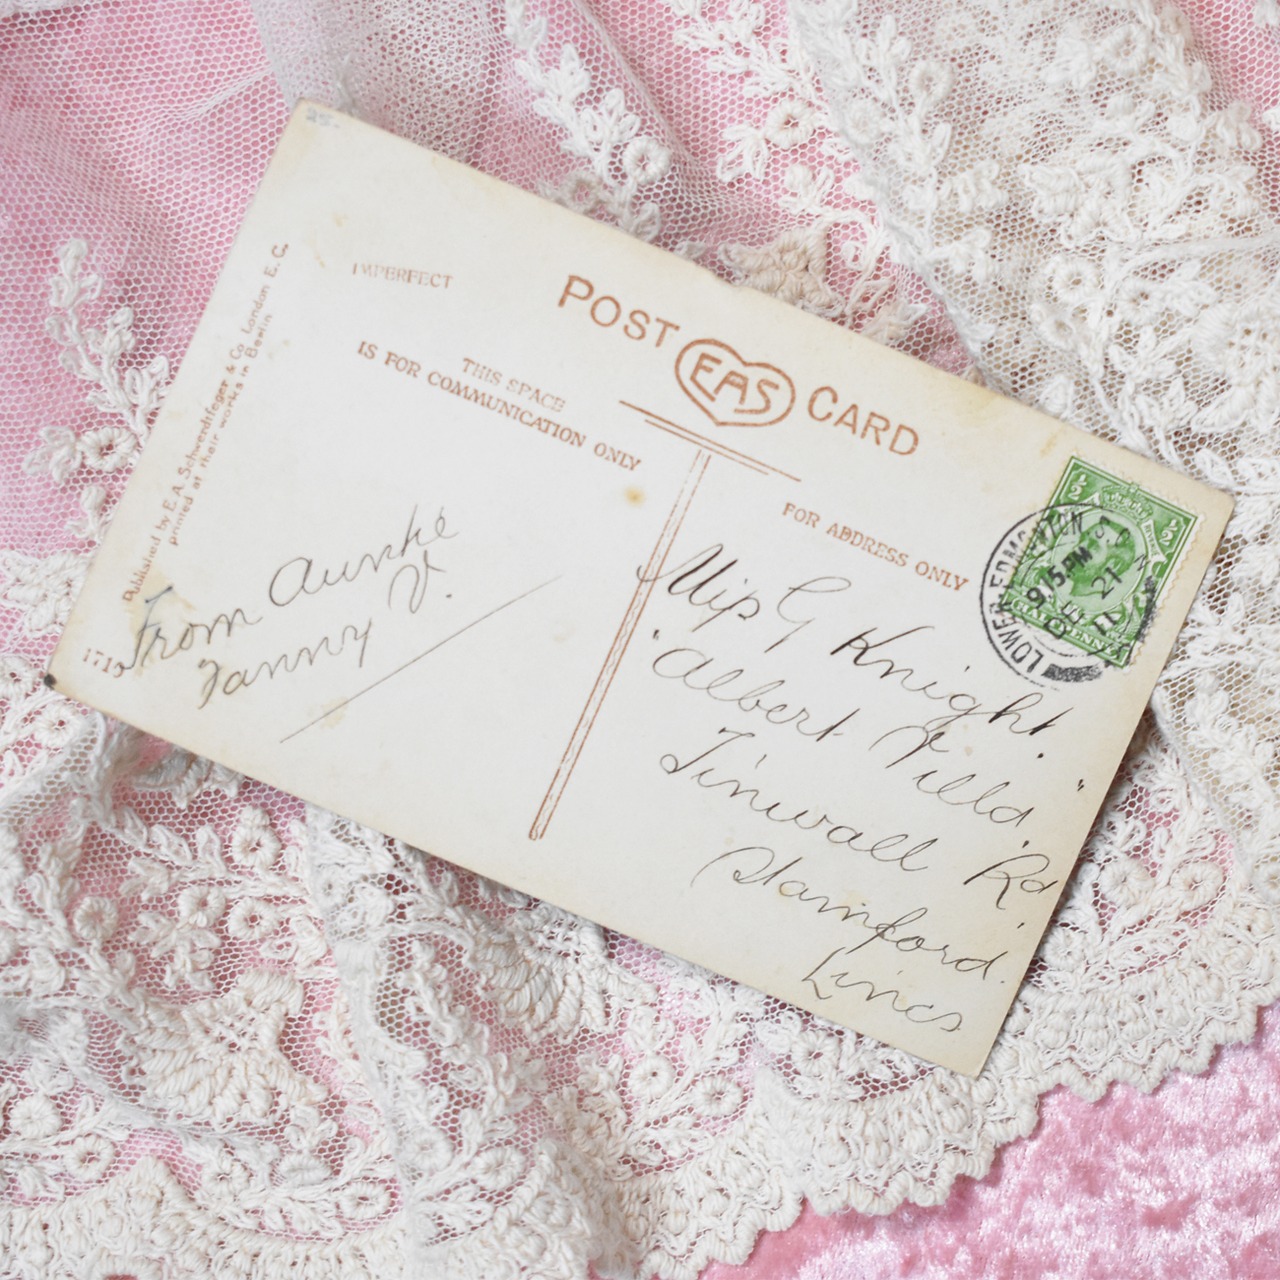 25-
IMPERFECT
POST EAS CARD
THIS SPACE
IS FOR COMMUNICATION ONLY
FOR ADDRESS ONLY
Published by E.A. Schwerdtfeger & Co London E.C.
printed at their works in Berlin
1719
From Auntie
Fanny V.
Miss G Knight.
"Albert Field"
Tinwall Rd.
Stamford.
Lincs
LOWER EDMONTON S.O N
9.15PM
21
11
½ ½